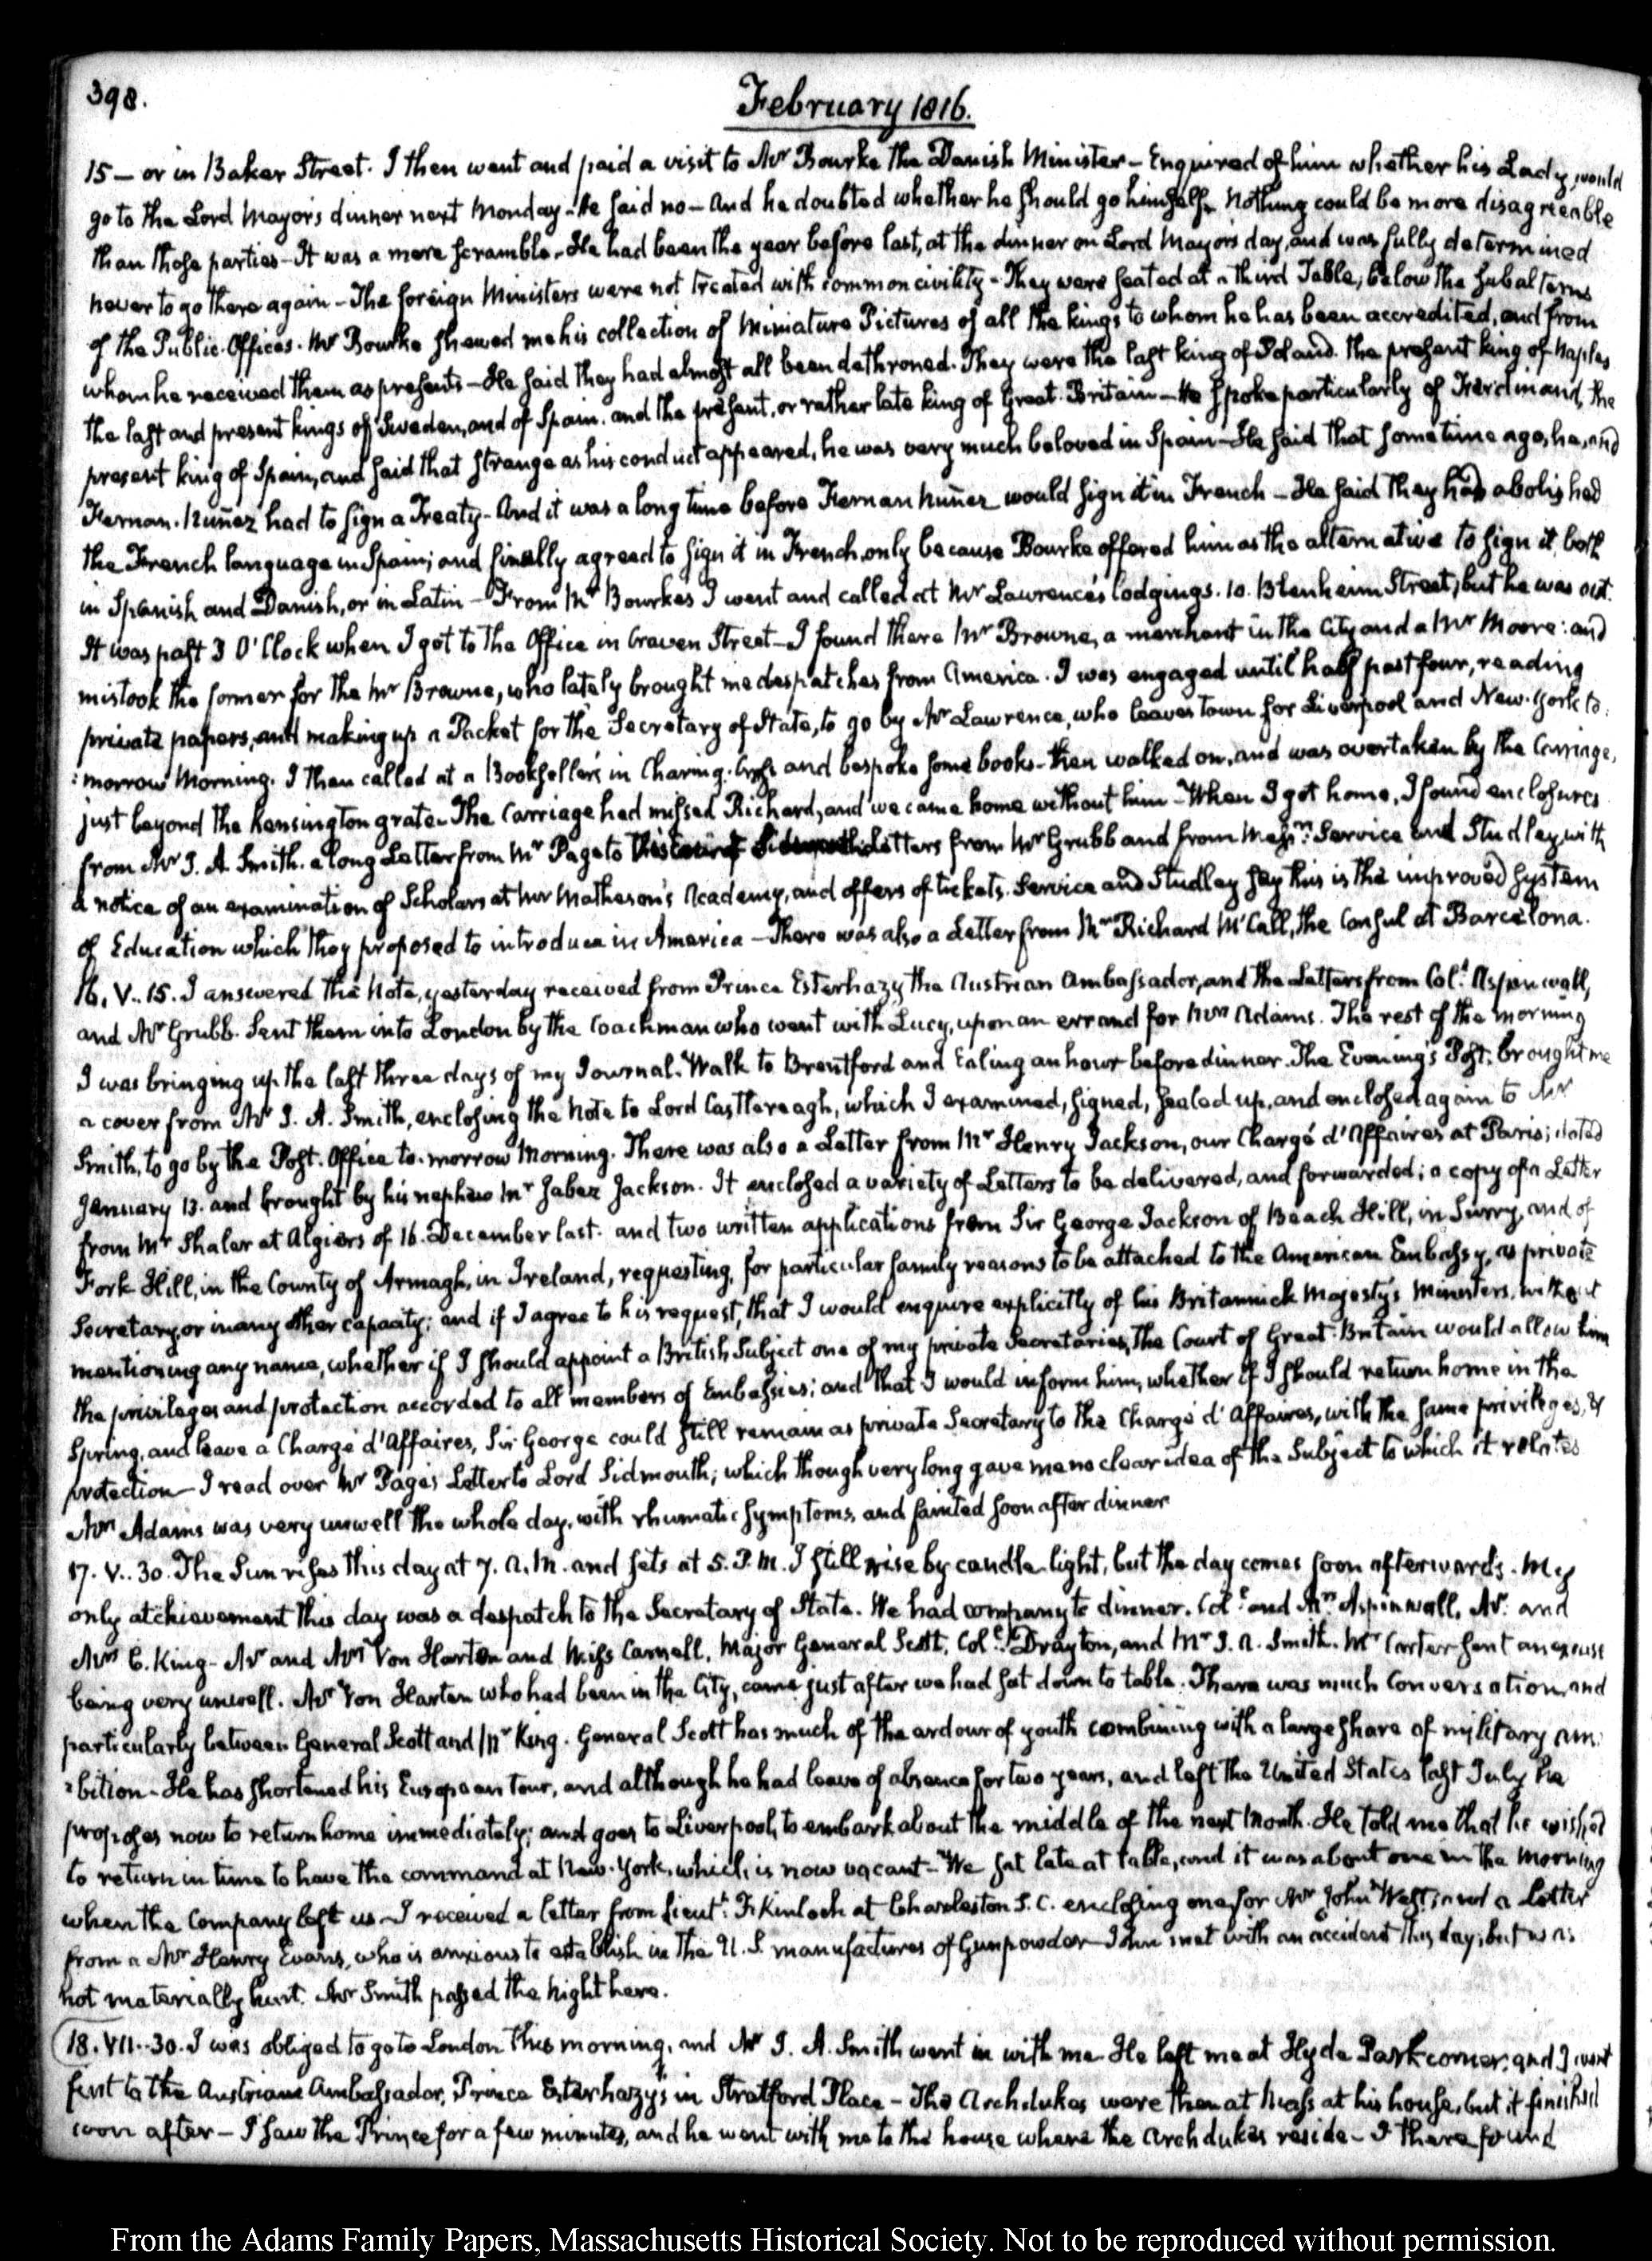 398.
February 1816.
15 — or in Baker Street. I then went and paid a visit to Mr Bourke the Danish Minister — Enquired of him whether his Lady, would
go to the Lord Mayor's dinner next Monday — He said no — And he doubted whether he should go himself. Nothing could be more disagreeable
than those parties — It was a mere scramble — He had been the year before last, at the dinner on Lord Mayors day, and was fully determined
never to go there again — The foreign Ministers were not treated with common civility — They were seated at a third Table, below the subalterns
of the Public Offices. Mr Bourke shewed me his collection of Miniature Pictures of all the kings to whom he has been accredited, and from
whom he received them as presents — He said they had almost all been dethroned. They were the last king of Poland. the present king of Naples
the last and present kings of Sweden, and of Spain. and the present, or rather late king of Great-Britain — He spoke particularly of Ferdinand, the
present king of Spain, and said that strange as his conduct appeared, he was very much beloved in Spain — He said that some time ago, he, and
Fernan-Nuñez had to sign a Treaty — And it was a long time before Fernan Nuñez would sign it in French — He said they had abolished
the French language in Spain; and finally agreed to sign it in French, only because Bourke offered him as the alternative to sign it both
in Spanish and Danish, or in Latin — From Mr Bourkes I went and called at Mr Lawrence's lodgings. 10. Blenheim Street, but he was out.
It was past 3 O'Clock when I got to the Office in Craven Street — I found there Mr Browne, a merchant in the City and a Mr Moore: and
mistook the former for the Mr Browne, who lately brought me despatches from America. I was engaged until half past four, reading
private papers, and making up a Packet for the Secretary of State, to go by Mr Lawrence, who leaves town for Liverpool and New-York to-
:morrow Morning. I then called at a Bookseller's in Charing-Cross and bespoke some books — then walked on, and was overtaken by the Carriage,
just beyond the Kensington grate — The Carriage had missed Richard, and we came home without him — When I got home, I found enclosures
from Mr J. A. Smith. a long Letter from Mr Page to Letters from Mr Grubb and from Messrs: Service and Studley, with
a notice of an examination of Scholars at Mr Matheson's Academy, and offers of tickets. Service and Studley say this is the improved system
of Education which they proposed to introduce in America — There was also a Letter from Mr Richard McCall, the Consul at Barcelona.
16. V..15. I answered the Note, yesterday received from Prince Esterhazy the Austrian Ambassador, and the Letters from Col: Aspinwall,
and Mr Grubb. Sent them into London by the Coachman who went with Lucy, upon an errand for Mrs Adams. The rest of the morning
I was bringing up the last three days of my Journal. Walk to Brentford and Ealing an hour before dinner. The Evening's Post brought me
a cover from Mr J. A. Smith, enclosing the Note to Lord Castlereagh, which I examined, signed, sealed up, and enclosed again to Mr
Smith, to go by the Post-Office to-morrow Morning. There was also a Letter from Mr Henry Jackson, our Chargé d'Affaires at Paris; dated
January 13. and brought by his nephew Mr Jabez Jackson. It enclosed a variety of Letters to be delivered, and forwarded; a copy of a Letter
from Mr Shaler at Algiers of 16. December last. and two written applications from Sir George Jackson of Beach Hill, in Surry, and of
Fork Hill, in the County of Armagh, in Ireland, requesting, for particular family reasons to be attached to the American Embassy, as private
Secretary, or in any other capacity; and if I agree to his request, that I would enquire explicitly of his Britannick Majesty's Ministers, without
mentioning any name, whether if I should appoint a British Subject one of my private Secretaries, the Court of Great-Britain would allow him
the privileges and protection accorded to all members of Embassies; and that I would inform him, whether if I should return home in the
Spring, and leave a Chargé d'Affaires, Sir George could still remain as private Secretary to the Chargé d'Affaires, with the same privileges, &
protection — I read over Mr Page's Letter to Lord Sidmouth; which though very long gave me no clear idea of the Subject to which it relates
Mrs Adams was very unwell the whole day, with rhumatic symptoms, and fainted soon after dinner
17. V..30. The Sun rises this day at 7. A.M. and sets at 5. P.M. I still rise by candle-light, but the day comes soon afterwards. My
only atchievement this day was a despatch to the Secretary of State. We had company to dinner. Col: and Mrs Aspinwall, Mr and
Mrs C. King — Mr and Mrs Von Harten and Miss Carnell, Major General Scott, Col: Drayton, and Mr J. A. Smith. Mr Carter sent an excuse
being very unwell. Mr Von Harten who had been in the City, came just after we had sat down to table. There was much Conversation, and
particularly between General Scott and Mr King. General Scott has much of the ardour of youth combining with a large share of military am-
:bition — He has shortened his European tour, and although he had leave of absence for two years, and left the United States last July he
proposes now to return home immediately; and goes to Liverpool, to embark about the middle of the next Month. He told me that he wished
to return in time to have the command at New-York, which, is now vacant — We sat late at table, and it was about one in the morning
when the Company left us — I received a letter from Lieutt: F. Kinloch at Charleston S.C. enclosing one for Mr John West; and a Letter
from a Mr Henry Evans, who is anxious to establish in the U.S. manufactures of Gunpowder — John met with an accident this day; but was
not materially hurt. Mr Smith passed the night here.
18. VII..30. I was obliged to go to London this morning, and Mr J. A. Smith went in with me — He left me at Hyde Park corner; and I went
first to the Austrian Ambassador, Prince Esterhazy's in Stratford Place — The Archdukes were then at Mass at his house, but it finished
soon after — I saw the Prince for a few minutes, and he went with me to the house where the Archdukes reside — I there found
From the Adams Family Papers, Massachusetts Historical Society. Not to be reproduced without permission.